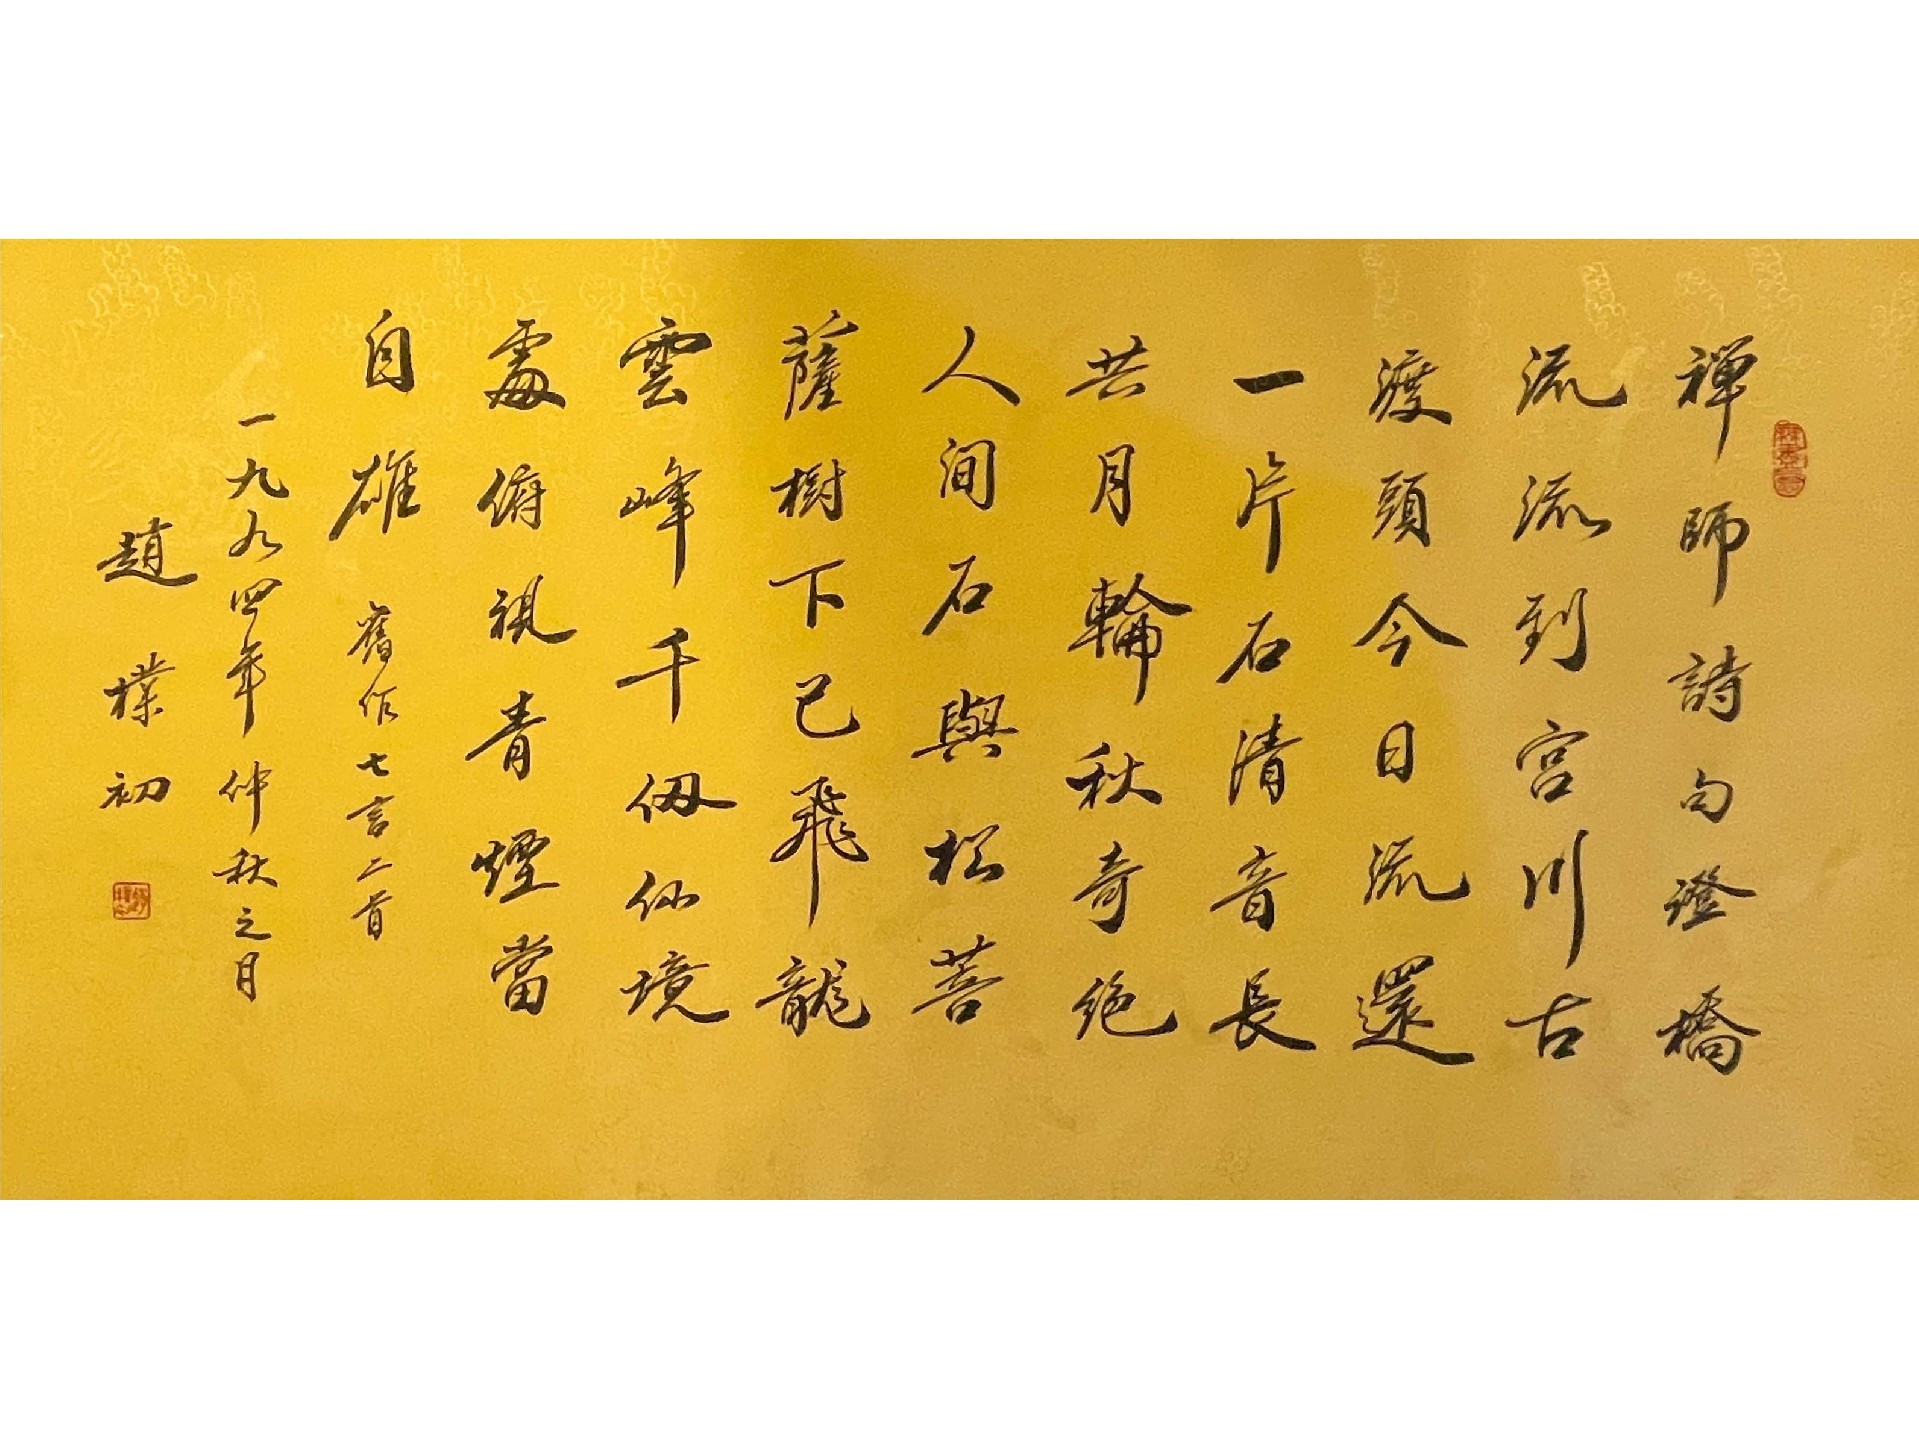 禅師詩句澄橋
流流到宮川古
渡頭今日流還
一片石清音長
共月輪秋奇絶
人间石與松菩
薩樹下已飛龍
雲峰千仭仙境
處俯視青煙當
自雄 舊作七言二首
一九九四年仲秋之月
趙樸初